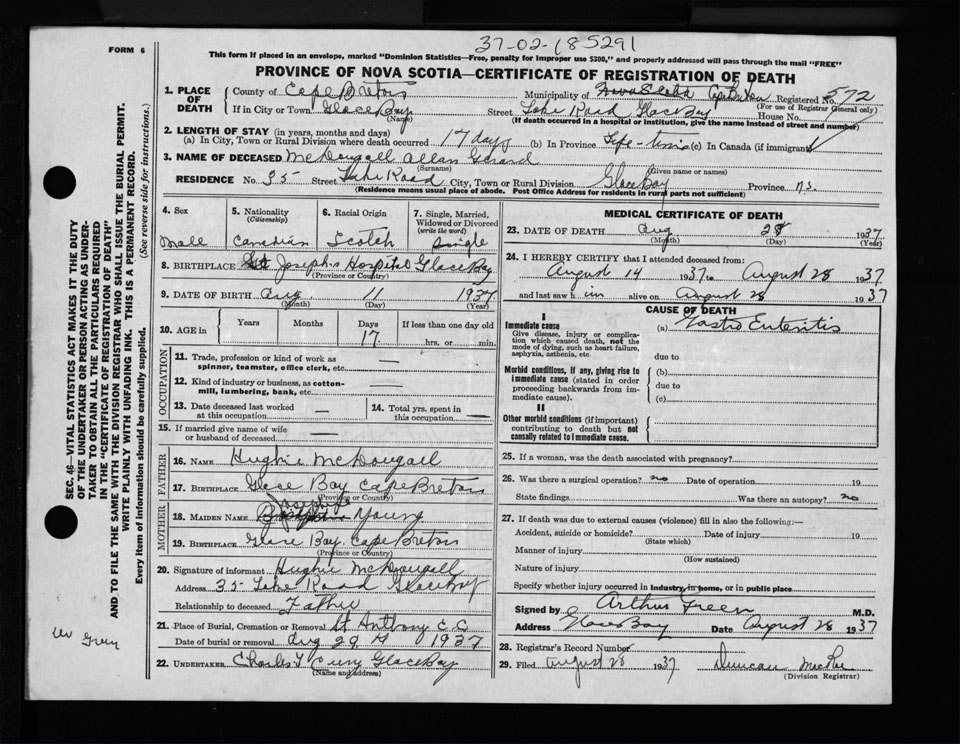 FORM 6
37-02-185291
This form if placed in an envelope, marked "Dominion Statistics—Free, penalty for improper use $300," and properly addressed will pass through the mail "FREE"
PROVINCE OF NOVA SCOTIA—CERTIFICATE OF REGISTRATION OF DEATH
1. PLACE OF DEATH
County of Cape Breton Municipality of Cape Breton Registered No. 572
(For use of Registrar General only)
If in City or Town Glace Bay Street Lake Road Glace Bay House No.
(Name) (If death occurred in a hospital or institution, give the name instead of street and number)
2. LENGTH OF STAY (in years, months and days)
(a) In City, Town or Rural Division where death occurred 17 days (b) In Province Life-time (c) In Canada (if immigrant)
3. NAME OF DECEASED McDougall Allan Gerard
(Surname) (Given name or names)
RESIDENCE No. 35 Street Lake Road City, Town or Rural Division Glace Bay Province N.S.
(Residence means usual place of abode. Post Office Address for residents in rural parts not sufficient)
4. Sex
Male
5. Nationality
(Citizenship)
Canadian
6. Racial Origin
Scotch
7. Single, Married, Widowed or Divorced
(write the word)
Single
8. BIRTHPLACE St Joseph's Hospital Glace Bay
(Province or Country)
9. DATE OF BIRTH Aug 11 1937
(Month) (Day) (Year)
10. AGE in
Years Months Days If less than one day old
17 hrs. or min.
OCCUPATION
11. Trade, profession or kind of work as
spinner, teamster, office clerk, etc. —
12. Kind of industry or business, as cotton-
mill, lumbering, bank, etc. —
13. Date deceased last worked
at this occupation —
14. Total yrs. spent in
this occupation —
15. If married give name of wife
or husband of deceased —
FATHER
16. NAME Hughie McDougall
17. BIRTHPLACE Glace Bay Cape Breton
(Province or Country)
MOTHER
18. MAIDEN NAME Young
19. BIRTHPLACE Glace Bay. Cape Breton
(Province or Country)
20. Signature of informant Hughie McDougall
Address 35 Lake Road Glace Bay
Relationship to deceased Father
21. Place of Burial, Cremation or Removal St Anthony
Date of burial or removal Aug 29 1937
22. UNDERTAKER Glace Bay
(Name and address)
MEDICAL CERTIFICATE OF DEATH
23. DATE OF DEATH Aug 28 1937
(Month) (Day) (Year)
24. I HEREBY CERTIFY that I attended deceased from:
August 14 1937 to August 28 1937
and last saw him alive on August 28 1937
CAUSE OF DEATH
I
Immediate cause
Give disease, injury or complication which caused death, not the mode of dying, such as heart failure, asphyxia, asthenia, etc.
(a) Gastro Enteritis
due to
Morbid conditions, if any, giving rise to immediate cause (stated in order proceeding backwards from immediate cause).
(b)
due to
(c)
II
Other morbid conditions (if important) contributing to death but not causally related to immediate cause.
25. If a woman, was the death associated with pregnancy?
26. Was there a surgical operation? no Date of operation 19
State findings Was there an autopsy? no
27. If death was due to external causes (violence) fill in also the following:—
Accident, suicide or homicide? Date of injury 19
(State which)
Manner of injury
(How sustained)
Nature of injury
Specify whether injury occurred in industry, in home, or in public place
Signed by Arthur Green M.D.
Address Glace Bay Date August 28 1937
28. Registrar's Record Number
29. Filed August 28 1937 Duncan MacRae
(Division Registrar)
SEC. 46—VITAL STATISTICS ACT MAKES IT THE DUTY
OF THE UNDERTAKER OR PERSON ACTING AS UNDER-
TAKER TO OBTAIN ALL THE PARTICULARS REQUIRED
IN THE "CERTIFICATE OF REGISTRATION OF DEATH"
AND TO FILE THE SAME WITH THE DIVISION REGISTRAR WHO SHALL ISSUE THE BURIAL PERMIT.
WRITE PLAINLY WITH UNFADING INK. THIS IS A PERMANENT RECORD.
Every item of information should be carefully supplied. (See reverse side for instructions.)